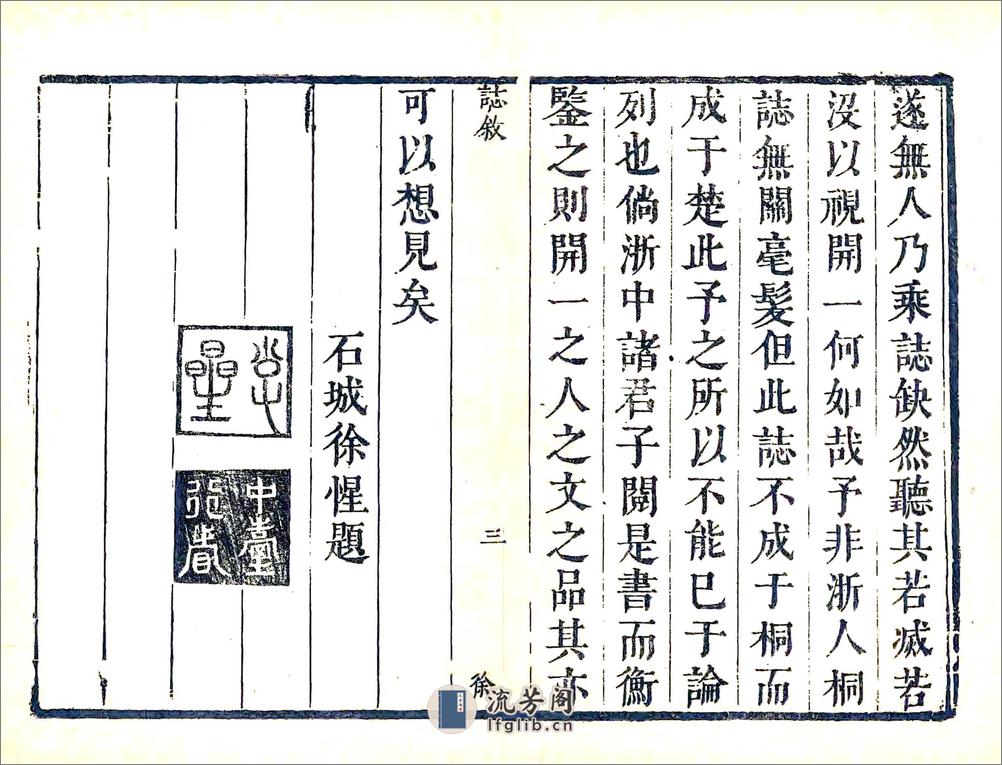 遂無人乃乘誌缺然聽其若滅若
沒以視開一何如哉予非浙人桐
誌無關毫髮但此誌不成于桐而
成于楚此予之所以不能已于論
列也倘浙中諸君子閱是書而衡
鑒之則開一之人之文之品其亦
誌敘
三
徐
可以想見矣
石城徐惺題
中臺
流芳阁
lfglib.cn